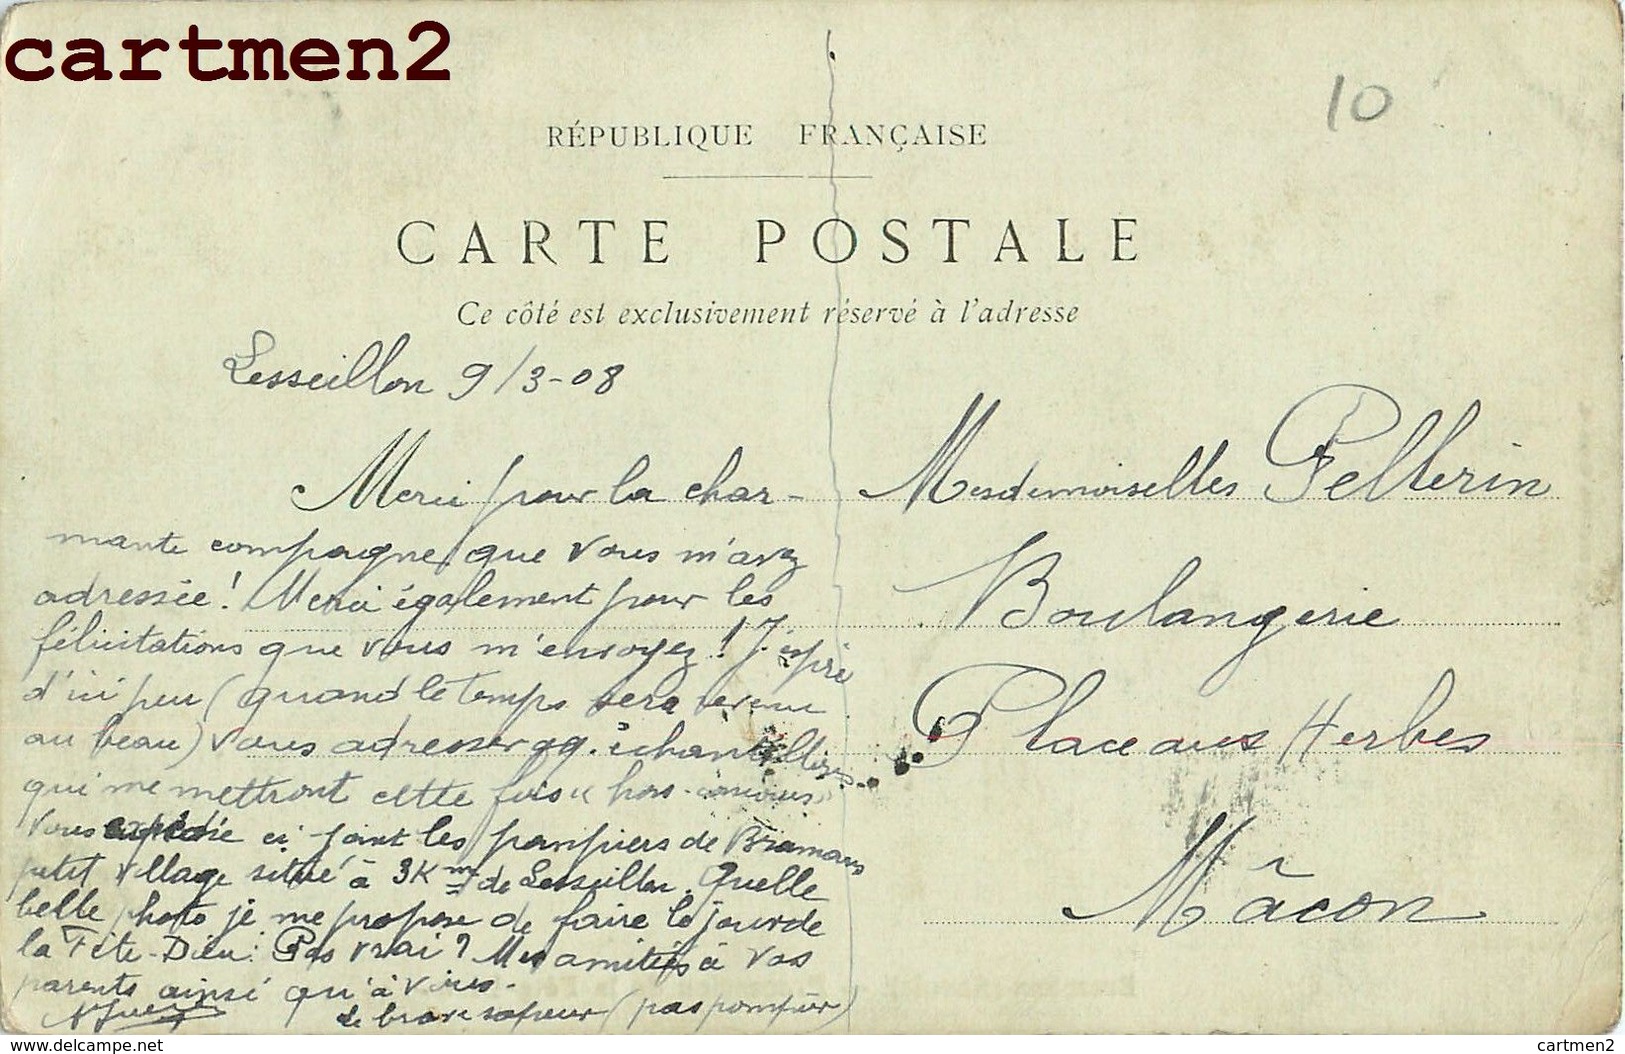 cartmen2
10
RÉPUBLIQUE FRANÇAISE
CARTE POSTALE
Ce côté est exclusivement réservé à l'adresse
Lesseillon 9/3-08
Merci pour la char-
mante compagne que vous m'avez
adressée! Merci également pour les
félicitations que vous m'envoyez! J'espère
d'ici peu (quand le temps sera revenu
au beau) vous adresser qq. échantillons
qui me mettront cette fois "hors-concours"
Vous expédie ci-joint les pompiers de Bramans
petit village situé à 3Km de Lesseillon. Quelle
belle photo je me propose de faire le jour de
la Fête-Dieu: Pas vrai? Mes amitiés à vos
parents ainsi qu'à vous.
le brave sapeur (pas pompier)
Mesdemoiselles Pellerin
Boulangerie
Place aux Herbes
Mâcon
delcampe.net
cartmen2